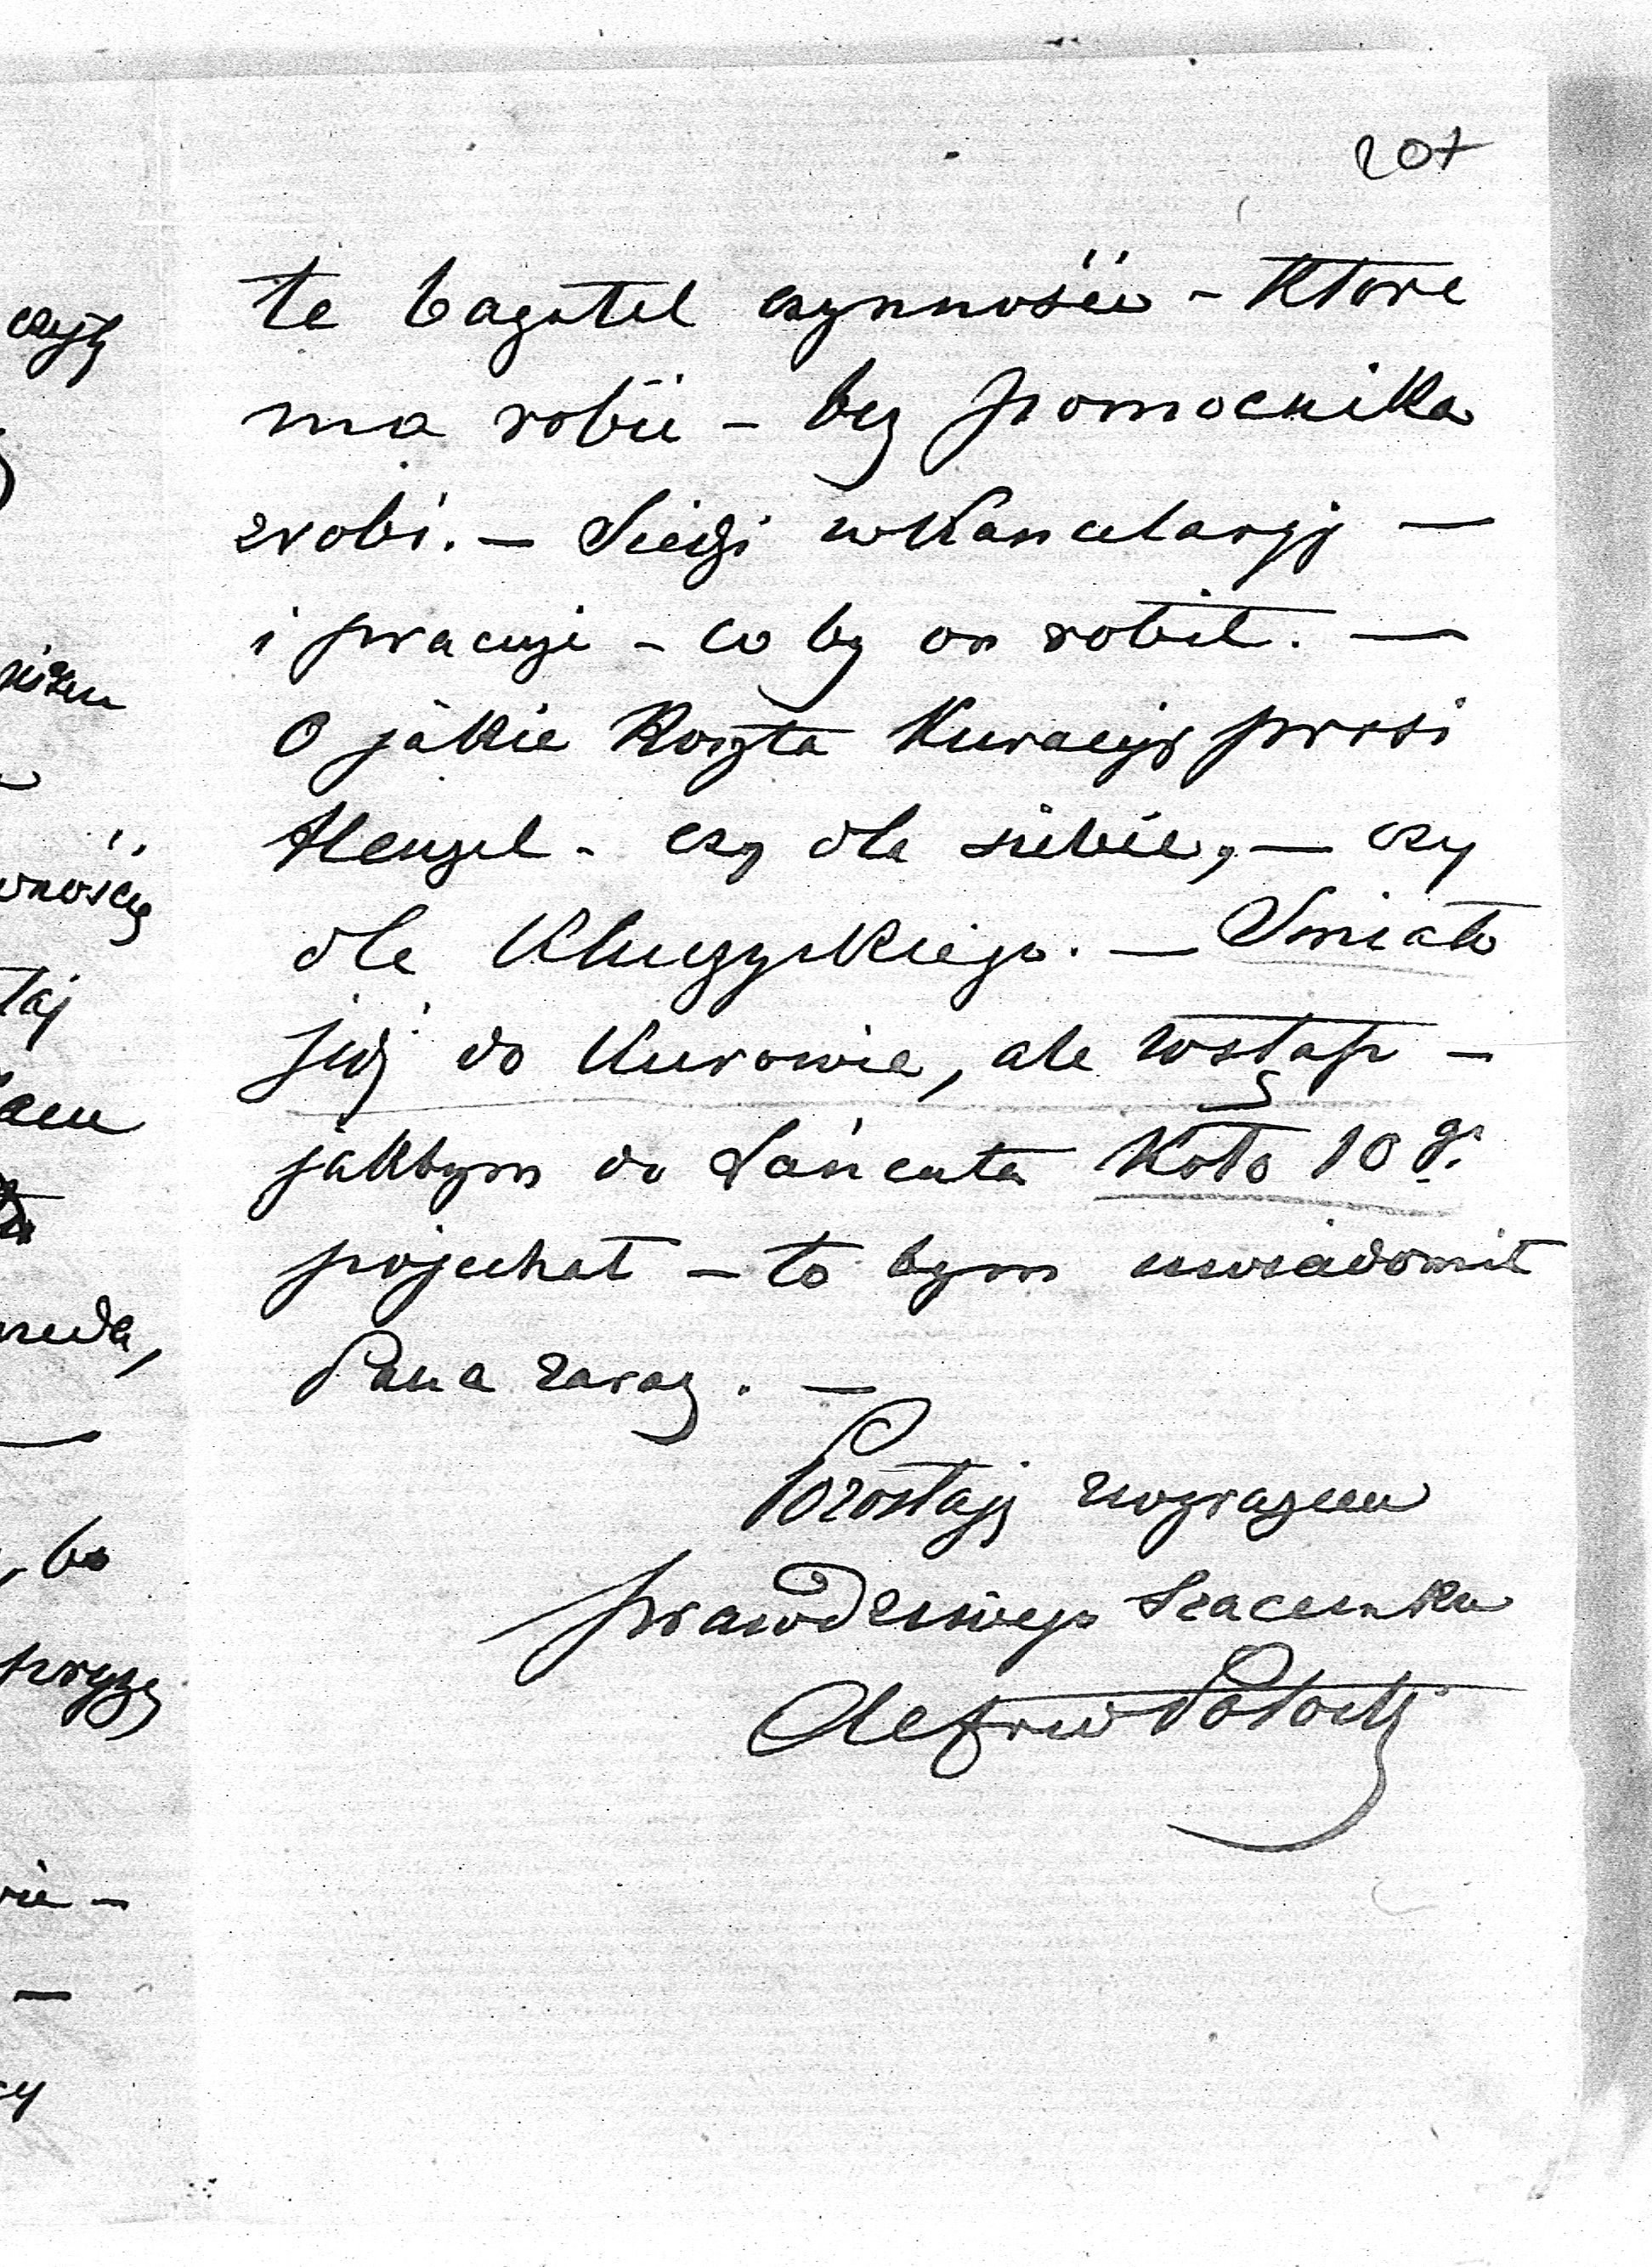 207
te bagatel czynności - które
ma robić - bez pomocnika
zrobi. - Siedzi w Kancelaryj -
i pracuje - co by on robił. -
O jakie Koszta Kuracyji prosi
Henzel - czy dla siebie, - czy
dla Kluczyckiego. - Smiało
jedź do Kurowic, ale wstąp -
jakbym do Łańcuta Koło 10 go
pojechał - to bym uwiadomił
Pana zaraz. -
Pozostaję z wyrazem
prawdziwego szacunku
Alfred Potocki